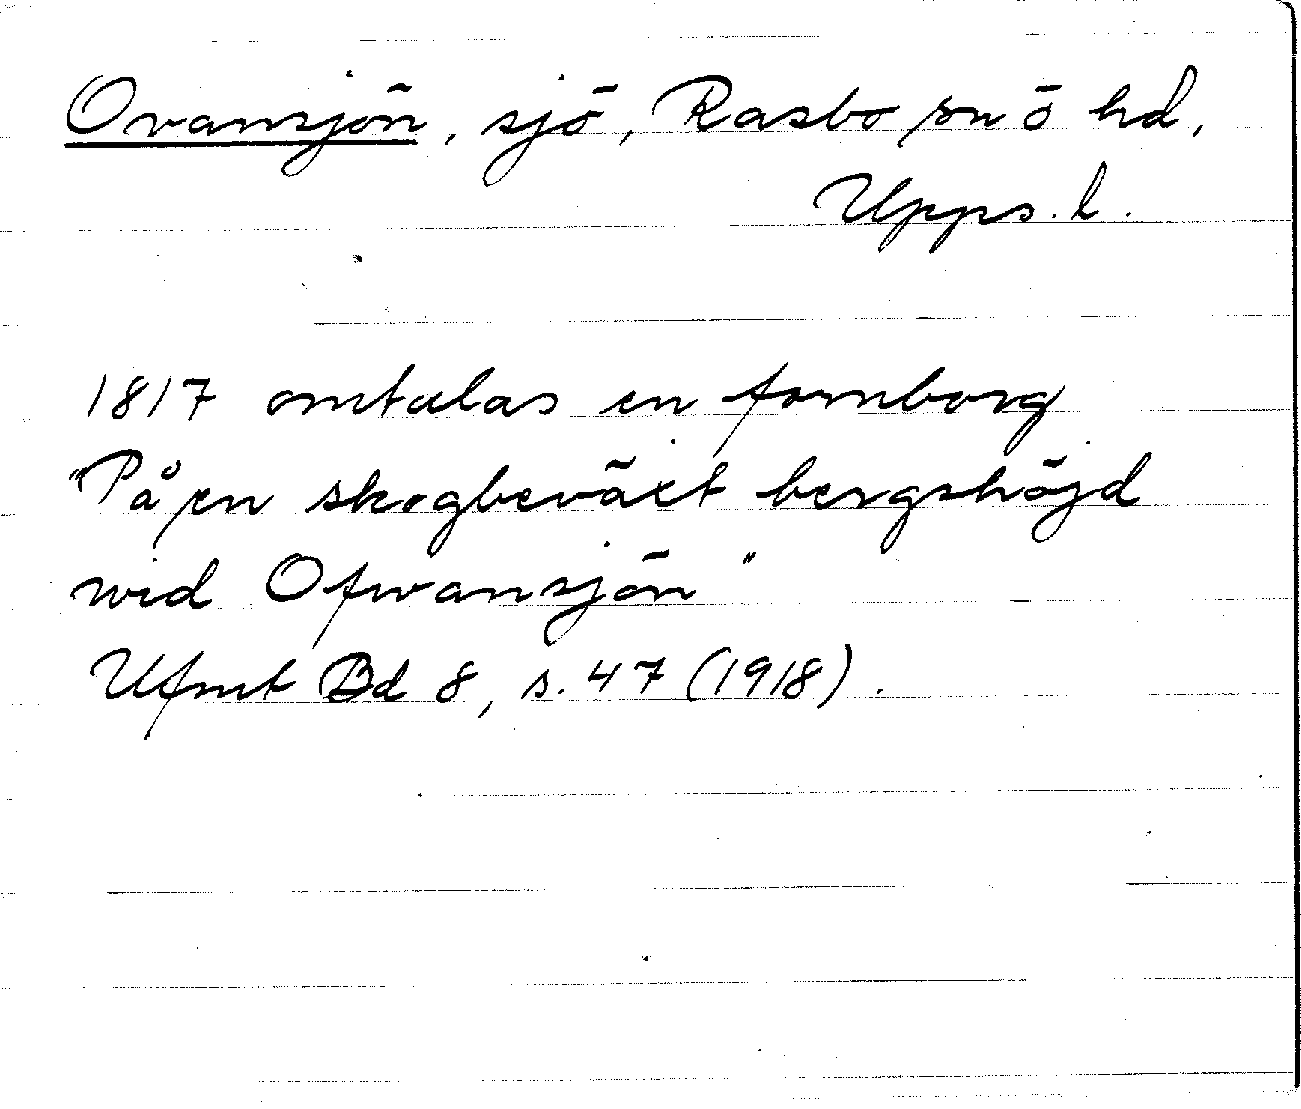 Ovansjön, sjö, Rasbo sn o hd,
Upps. l.
1817 omtalas en fornborg
"På en skogbeväxt bergshöjd
wid Ofwansjön"
Ufmt Bd 8, s. 47 (1918).